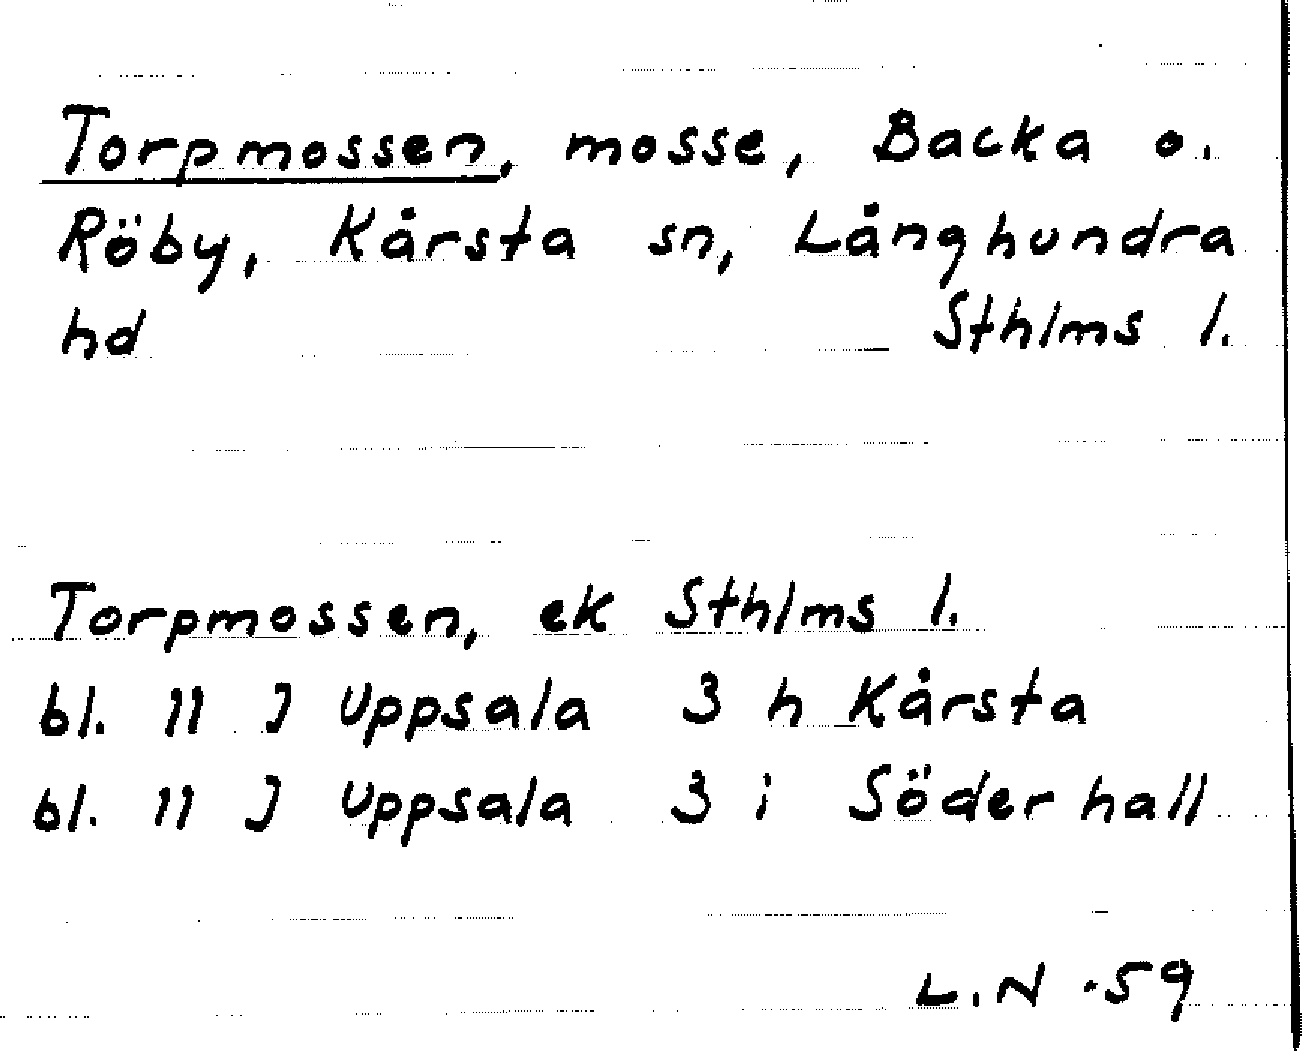 Torpmossen, mosse, Backa o.
Röby, Kårsta sn, Långhundra
hd Sthlms l.
Torpmossen, ek Sthlms l.
bl. 11 J Uppsala 3 h Kårsta
bl. 11 J Uppsala 3 i Söderhall
L.N -59